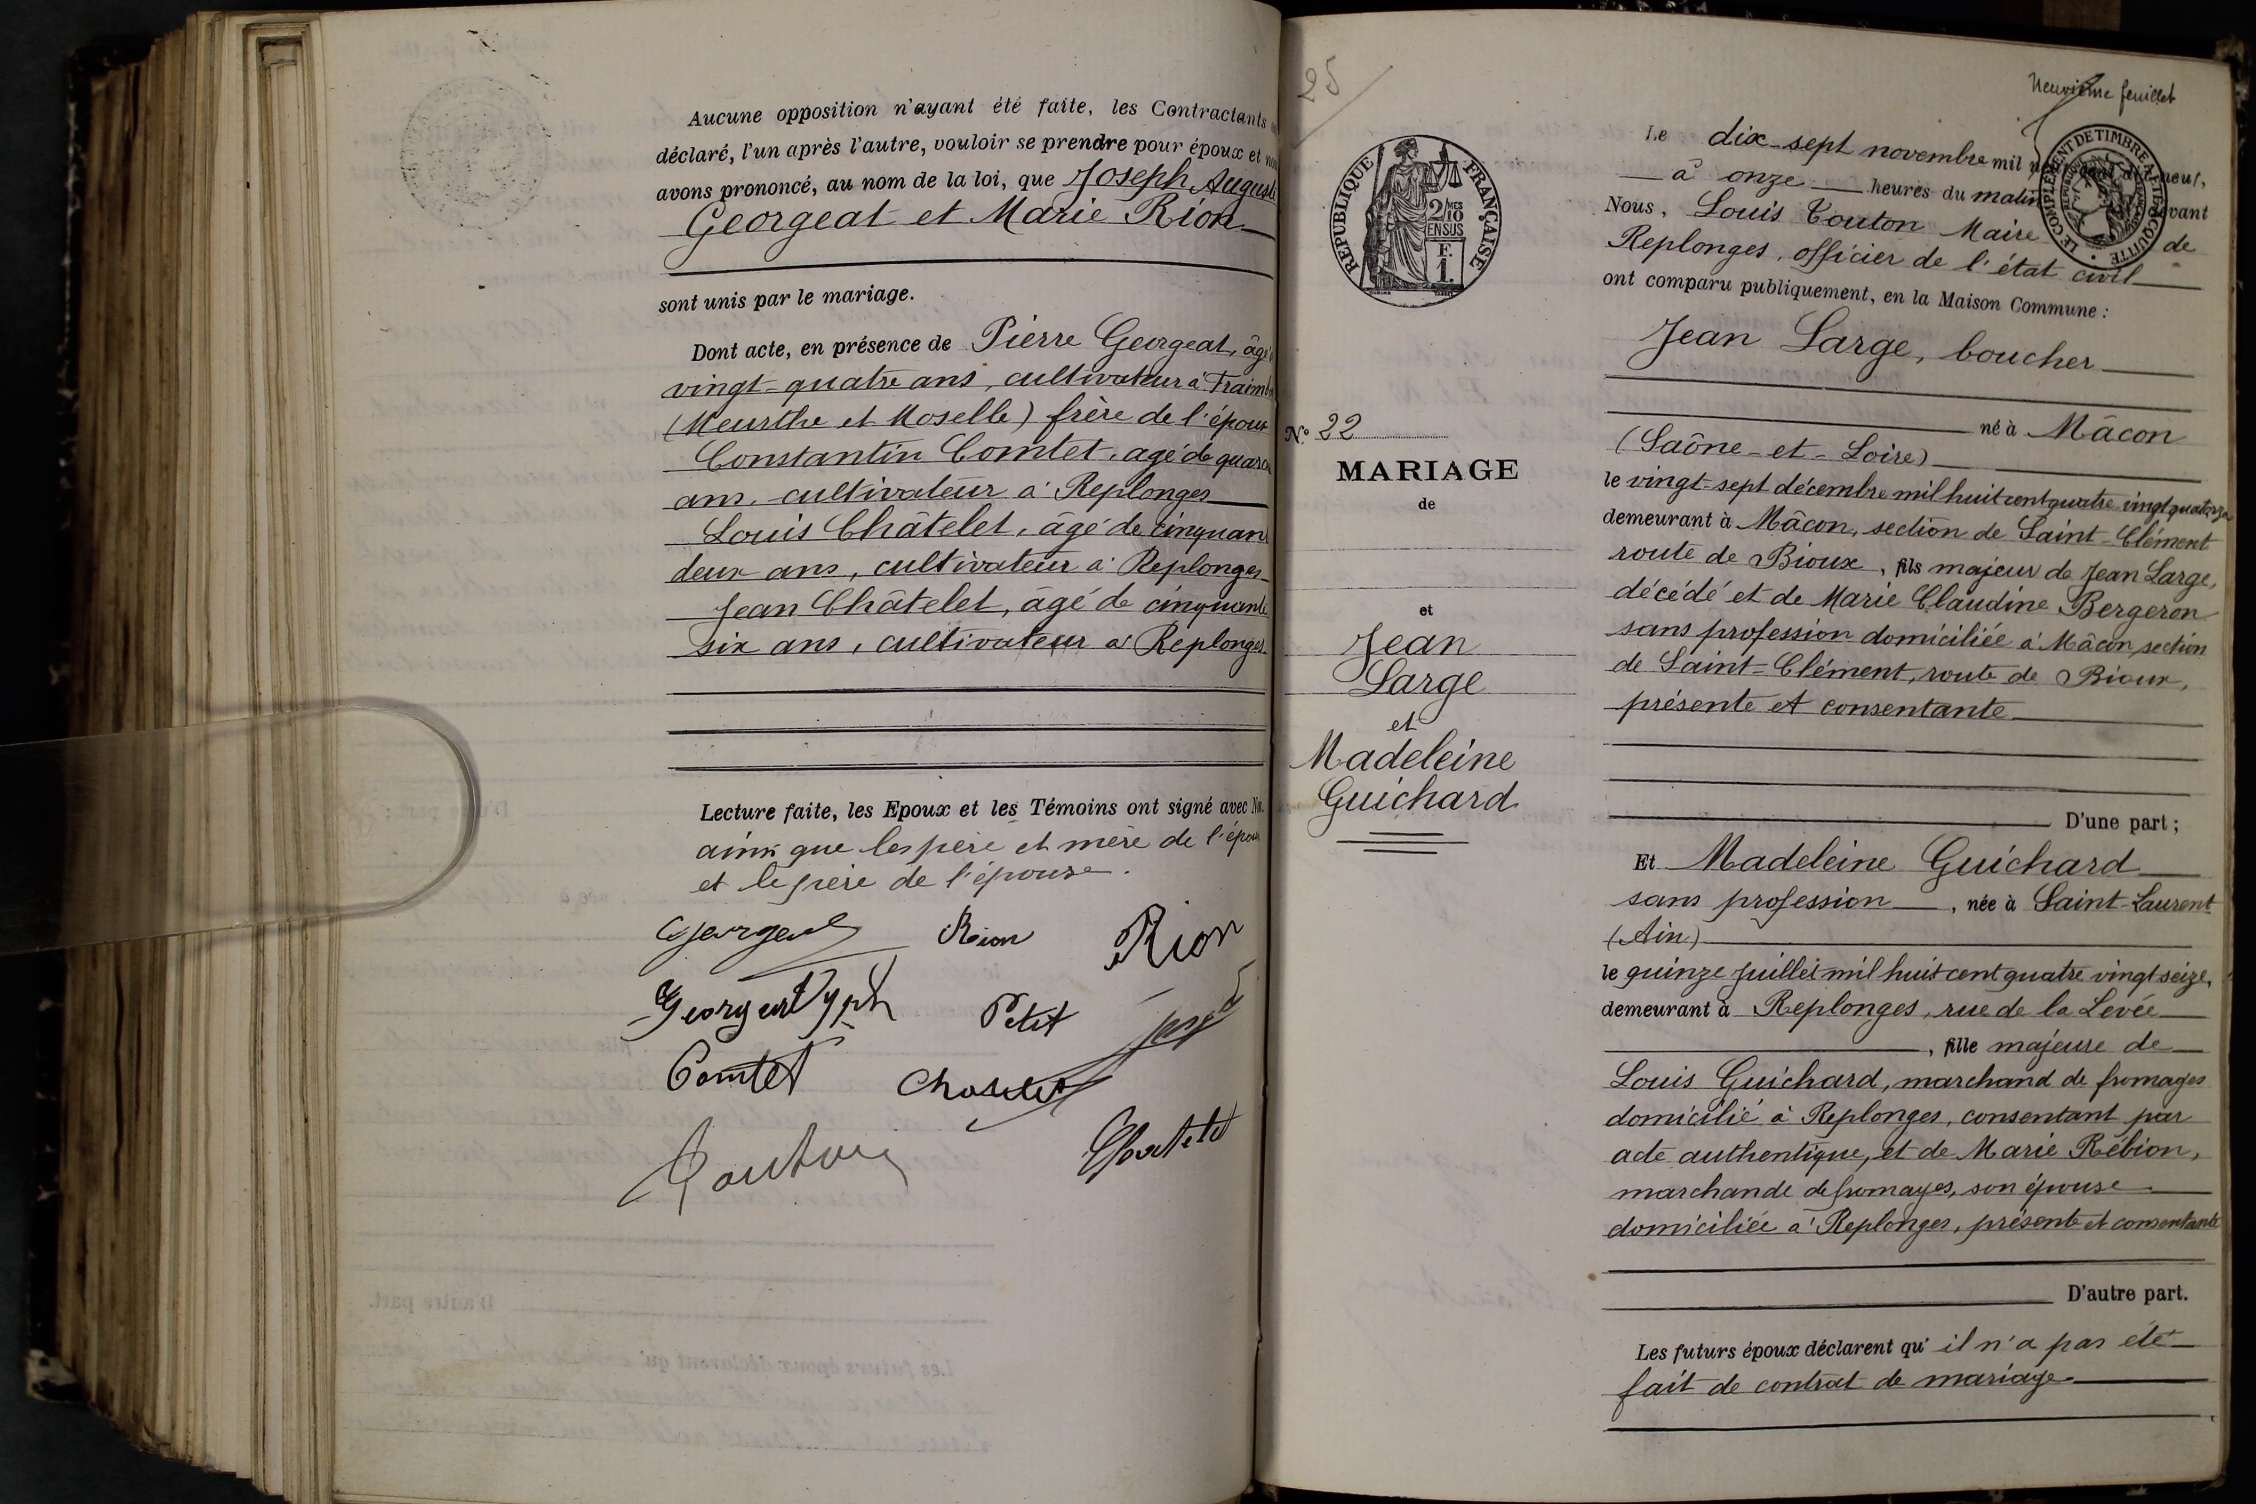 Aucune opposition n'ayant été faite, les Contractants
déclaré, l'un après l'autre, vouloir se prendre pour époux et
avons prononcé, au nom de la loi, que Joseph Auguste
Georgeat et Marie Rion
sont unis par le mariage.
Dont acte, en présence de Pierre Georgeat, âgé
vingt-quatre ans, cultivateur à
(Meurthe et Moselle) frère de l'époux
Constantin Comtet, agé de
ans, cultivateur à Replonges
Louis Châtelet, âgé de cinquan
deux ans, cultivateur à Replonges
Jean Châtelet, âgé de cinquante
six ans, cultivateur à Replonges
Lecture faite, les Epoux et les Témoins ont signé avec
ainsi que les père et mère de l'époux
et le père de l'épouse.
Georgeat Rion Rion
Georgeat Petit
Comtet Chatelet
Chatelet
25
RÉPUBLIQUE FRANÇAISE
2/10 MES
EN SUS
F.
1.
N.º 22
MARIAGE
de
et
Jean
Large
et
Madeleine
Guichard
Neuvième feuillet
LE COMPLÉMENT DE TIMBRE A ÉTÉ ACQUITTÉ
Le dix-sept novembre mil neuf,
à onze heures du matin devant
Nous, Louis Touton Maire de
Replonges, officier de l'état civil
ont comparu publiquement, en la Maison Commune :
Jean Large, boucher
né à Mâcon
(Saône-et-Loire)
le vingt-sept décembre mil huit cent quatre vingt quatorze
demeurant à Mâcon, section de Saint-Clément
route de Bioux, fils majeur de Jean Large,
décédé et de Marie Claudine Bergeron
sans profession domiciliée à Mâcon, section
de Saint-Clément, route de Bioux,
présente et consentante
D'une part ;
Et Madeleine Guichard
sans profession, née à Saint-Laurent
(Ain)
le quinze juillet mil huit cent quatre vingt seize,
demeurant à Replonges, rue de la Levée
, fille majeure de
Louis Guichard, marchand de fromages
domicilié à Replonges, consentant par
acte authentique, et de Marie Rébion,
marchande de fromages, son épouse
domiciliée à Replonges, présente et consentante
D'autre part.
Les futurs époux déclarent qu' il n'a pas été
fait de contrat de mariage.